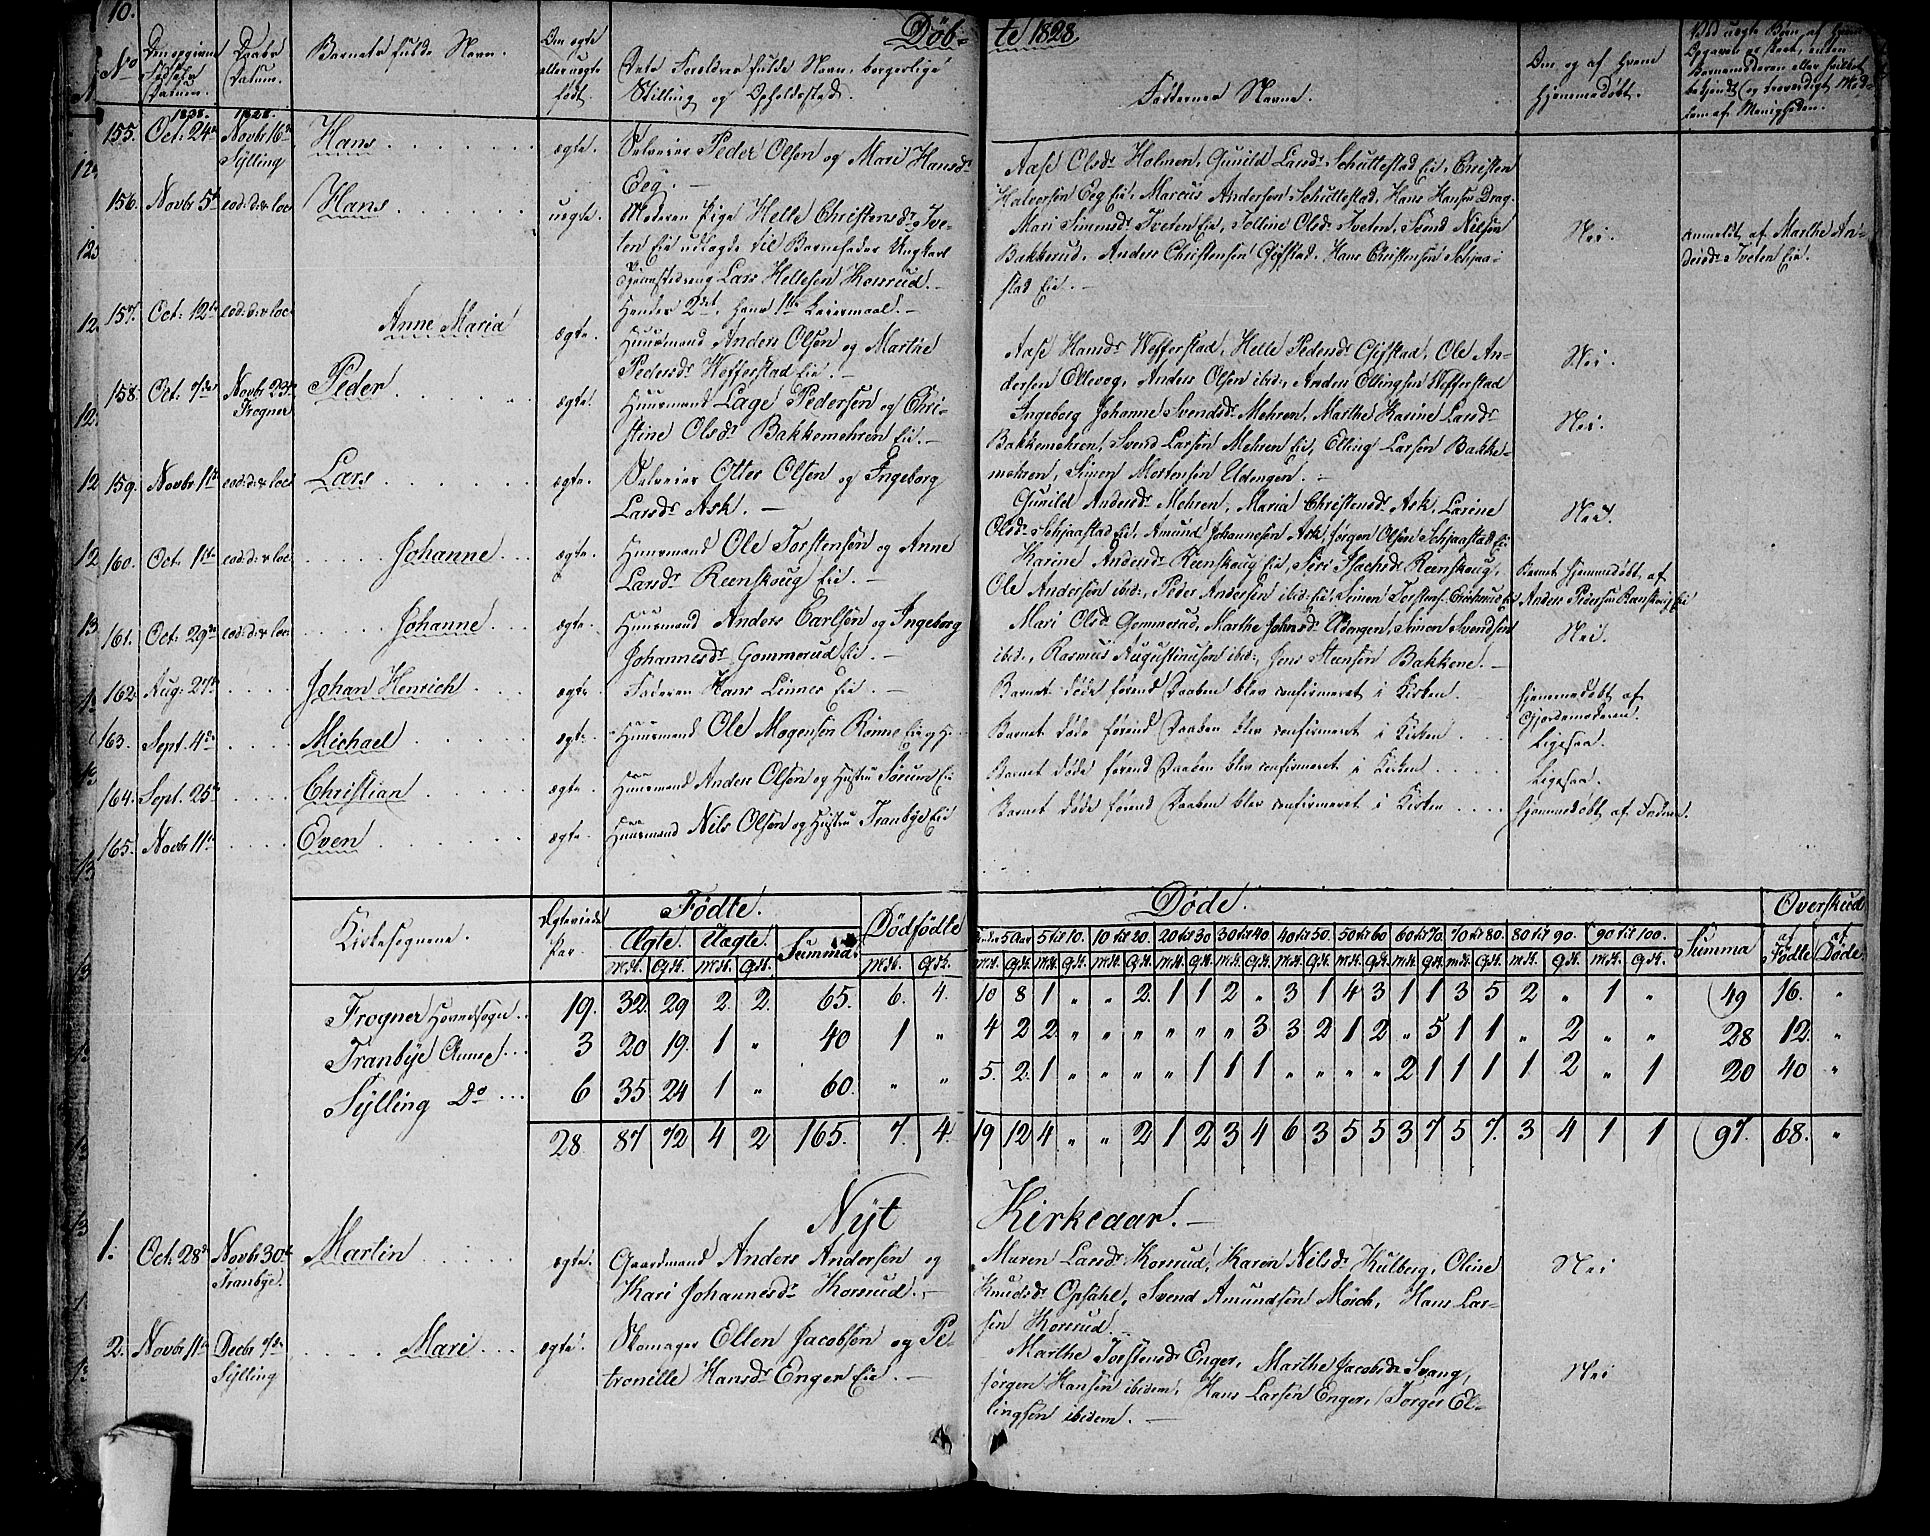 10.
Døb- te 1828
No
Den opgivne Fødsels Datum.
Daabs Datum.
Barnets fulde Navn.
Om ægte eller uegte født.
Dets Forældres fulde Navn, borgerlige Stilling og Opholdssted.
Faddernes Navne.
Om og af hvem hjemmedøbt.
1828. 1828.
155. Oct. 24de Novbr 16de Sylling Hans ægte. Selveier Peder Olsen og Mari Hansdr
Eeg. —
Aase Olsdr Holmen, Gunild Larsdr Schuttestad Eie, Christen
Halvorsen Eeg Eie, Marcus Andersen Schuttestad, Hans Hansen Drag.
156. Novbr 5te eod: d: & loc: Hans uegte. Moderen Pige Helle Christensdr Tve-
ten Eie udlagde til Barnefader Ungkarl
Tjenestedreng Lars Hellesen Korsrud. —
Hendes 2det, hans 1ste Leiermaal. —
Mari Simensdr Tveten Eie, Jelline Olsdr Tveten, Svend Nilsen
Bakkerud, Anders Christensen Gifstad, Hans Christensen Schjaa-
stad Eie. —
Nei.
Anmeldt af Marthe An-
dersdr Tveten Eie.
157. Oct: 12te eod: d: & loc: Anne Maria ægte. Huusmand Anders Olsen og Marthe
Pedersdr Hefferstad Eie. —
Aase Hansdr Wefferstad, Helle Pedersdr Gifstad, Ole An-
dersen Ellevog, Anders Olsen ibid:, Anders Ellingsen Wefferstad
Nei.
158. Oct. 7de Novbr 23de Frogner Peder ægte. Huusmand Lage Pedersen og Chri-
stine Olsdr Bakkemehren Eie. —
Ingeborg Johanne Svendsdr Mehren, Marthe Karine Larsdr
Bakkemehren, Svend Larsen Mehren Eie, Elling Larsen Bakke-
mehren, Simon Mortensen Udengen. —
Nei.
159. Novbr 1ste eod: d: & loc: Lars ægte. Selveier Otter Olsen og Ingeborg
Larsdr Ask. —
Gunild Andersdr Mehren, Maria Christensdr Ask, Larine
Olsdr Schjaastad Eie, Amund Johannesen Ask, Jørgen Olsen Schjaastad Eie
Nei.
160. Oct: 1ste eod: d: & loc: Johanne ægte. Huusmand Ole Torstensen og Anne
Larsdr Reenskoug Eie. —
Karine Andersdr Reenskoug Eie, Siri Isachsdr Reenskoug,
Ole Andersen ibid:, Peder Andersen ibid: Eie, Simen Torstens.
Barnet hjemmedøbt af
Anders Pedersen Renskoug Eie
161. Oct. 29de eod: d: & loc: Johanne ægte. Huusmand Anders Carlsen og Ingeborg
Johannesdr Gommerud Eie. —
Mari Olsd Gommerud, Marthe Johnsdr Udengen, Simon Svendsen
ibid:, Rasmus Augustinusen ibid:, Jens Steensen Bakkene. —
Nei.
162. Aug. 27de Johan Henrich ægte Faderen Hans Linnes Eie. —
Barnet døde førend Daaben blev confirmeret i Kirken.
hjemmedøbt af
Gjordemoderen.
163. Sept. 4de Michael ægte. Huusmand Ole Mogensen Rønne Eie og H.
Barnet døde førend Daaben blev confirmeret i Kirken.
Ligesaa.
164. Sept. 25de Christian ægte. Huusmand Anders Olsen og Hustru Sørum Eie
Barnet døde førend Daaben blev confirmeret i Kirken
Ligesaa.
165. Novbr 11te Even ægte. Huusmand Nils Olsen og Hustru Tranbye Eie
Barnet døde førend Daaben blev confirmeret i Kirken
hjemmedøbt af Faderen.
Kirkesognene. Ægteviede Par. Fødte. Dødfødte Døde. Overskud
Ægte. Uægte. Summa. Under 5 Aar 5 til 10. 10 til 20. 20 til 30 30 til 40 40 til 50. 50 til 60 60 til 70. 70 til 80. 80 til 90. 90 til 100. Summa af Fødte af Døde.
M.K. Q.K. M.K. Q.K. M.K. Q.K. M.K. Q.K. M.K. Q.K. M.K. Q.K. M.K. Q.K. M.K. Q.K. M.K. Q.K. M.K. Q.K. M.K. Q.K. M.K. Q.K. M.K. Q.K. M.K. Q.K.
Frogner Hovedsogn 19. 32. 29 2. 2. 65. 6. 4. 10 8 1 " " 2 1 1 2 " 3 1 4 3 1 1 3 5 2 " 1 " 49 16. "
Tranbye Annex 3 20 19. 1 " 40 1 " 4 2 2 " " " " " " 3 3 2 1 2 " 5 1 1 " 2 " " 28 12. "
Sylling Do 6 35 24 1 " 60. " " 5. 2 1 " " " " 1 1 1 " " " " 2 1 1 1 1 2 " 1 20 40 "
28 87 72 4 2 165. 7. 4. 19 12 4 " " 2 1 2 3 4 6 3 5 5 3 7 5 7. 3 4 1 1 97. 68. "
Nyt Kirkeaar. —
1. Oct. 28de Novbr 30te Tranbye. Martin ægte. Gaardmand Anders Andersen og
Kari Johannesdr Korsrud. —
Maren Larsdr Korsrud, Karen Nilsdr Kulberg, Oline
Knudsdr Opsahl, Svend Amundsen Mørch, Hans Lar-
sen Korsrud
Nei
2. Novbr 11te Decbr 7de Sylling Mari ægte. Skomager Ellen Jacobsen og Pe-
tronille Hansdr Enger Eie. —
Marthe Torstensdr Enger, Marthe Jacobsdr Svang,
Jørgen Hansen ibidem, Hans Larsen Enger, Torger El-
lingsen ibidem. —
Nei